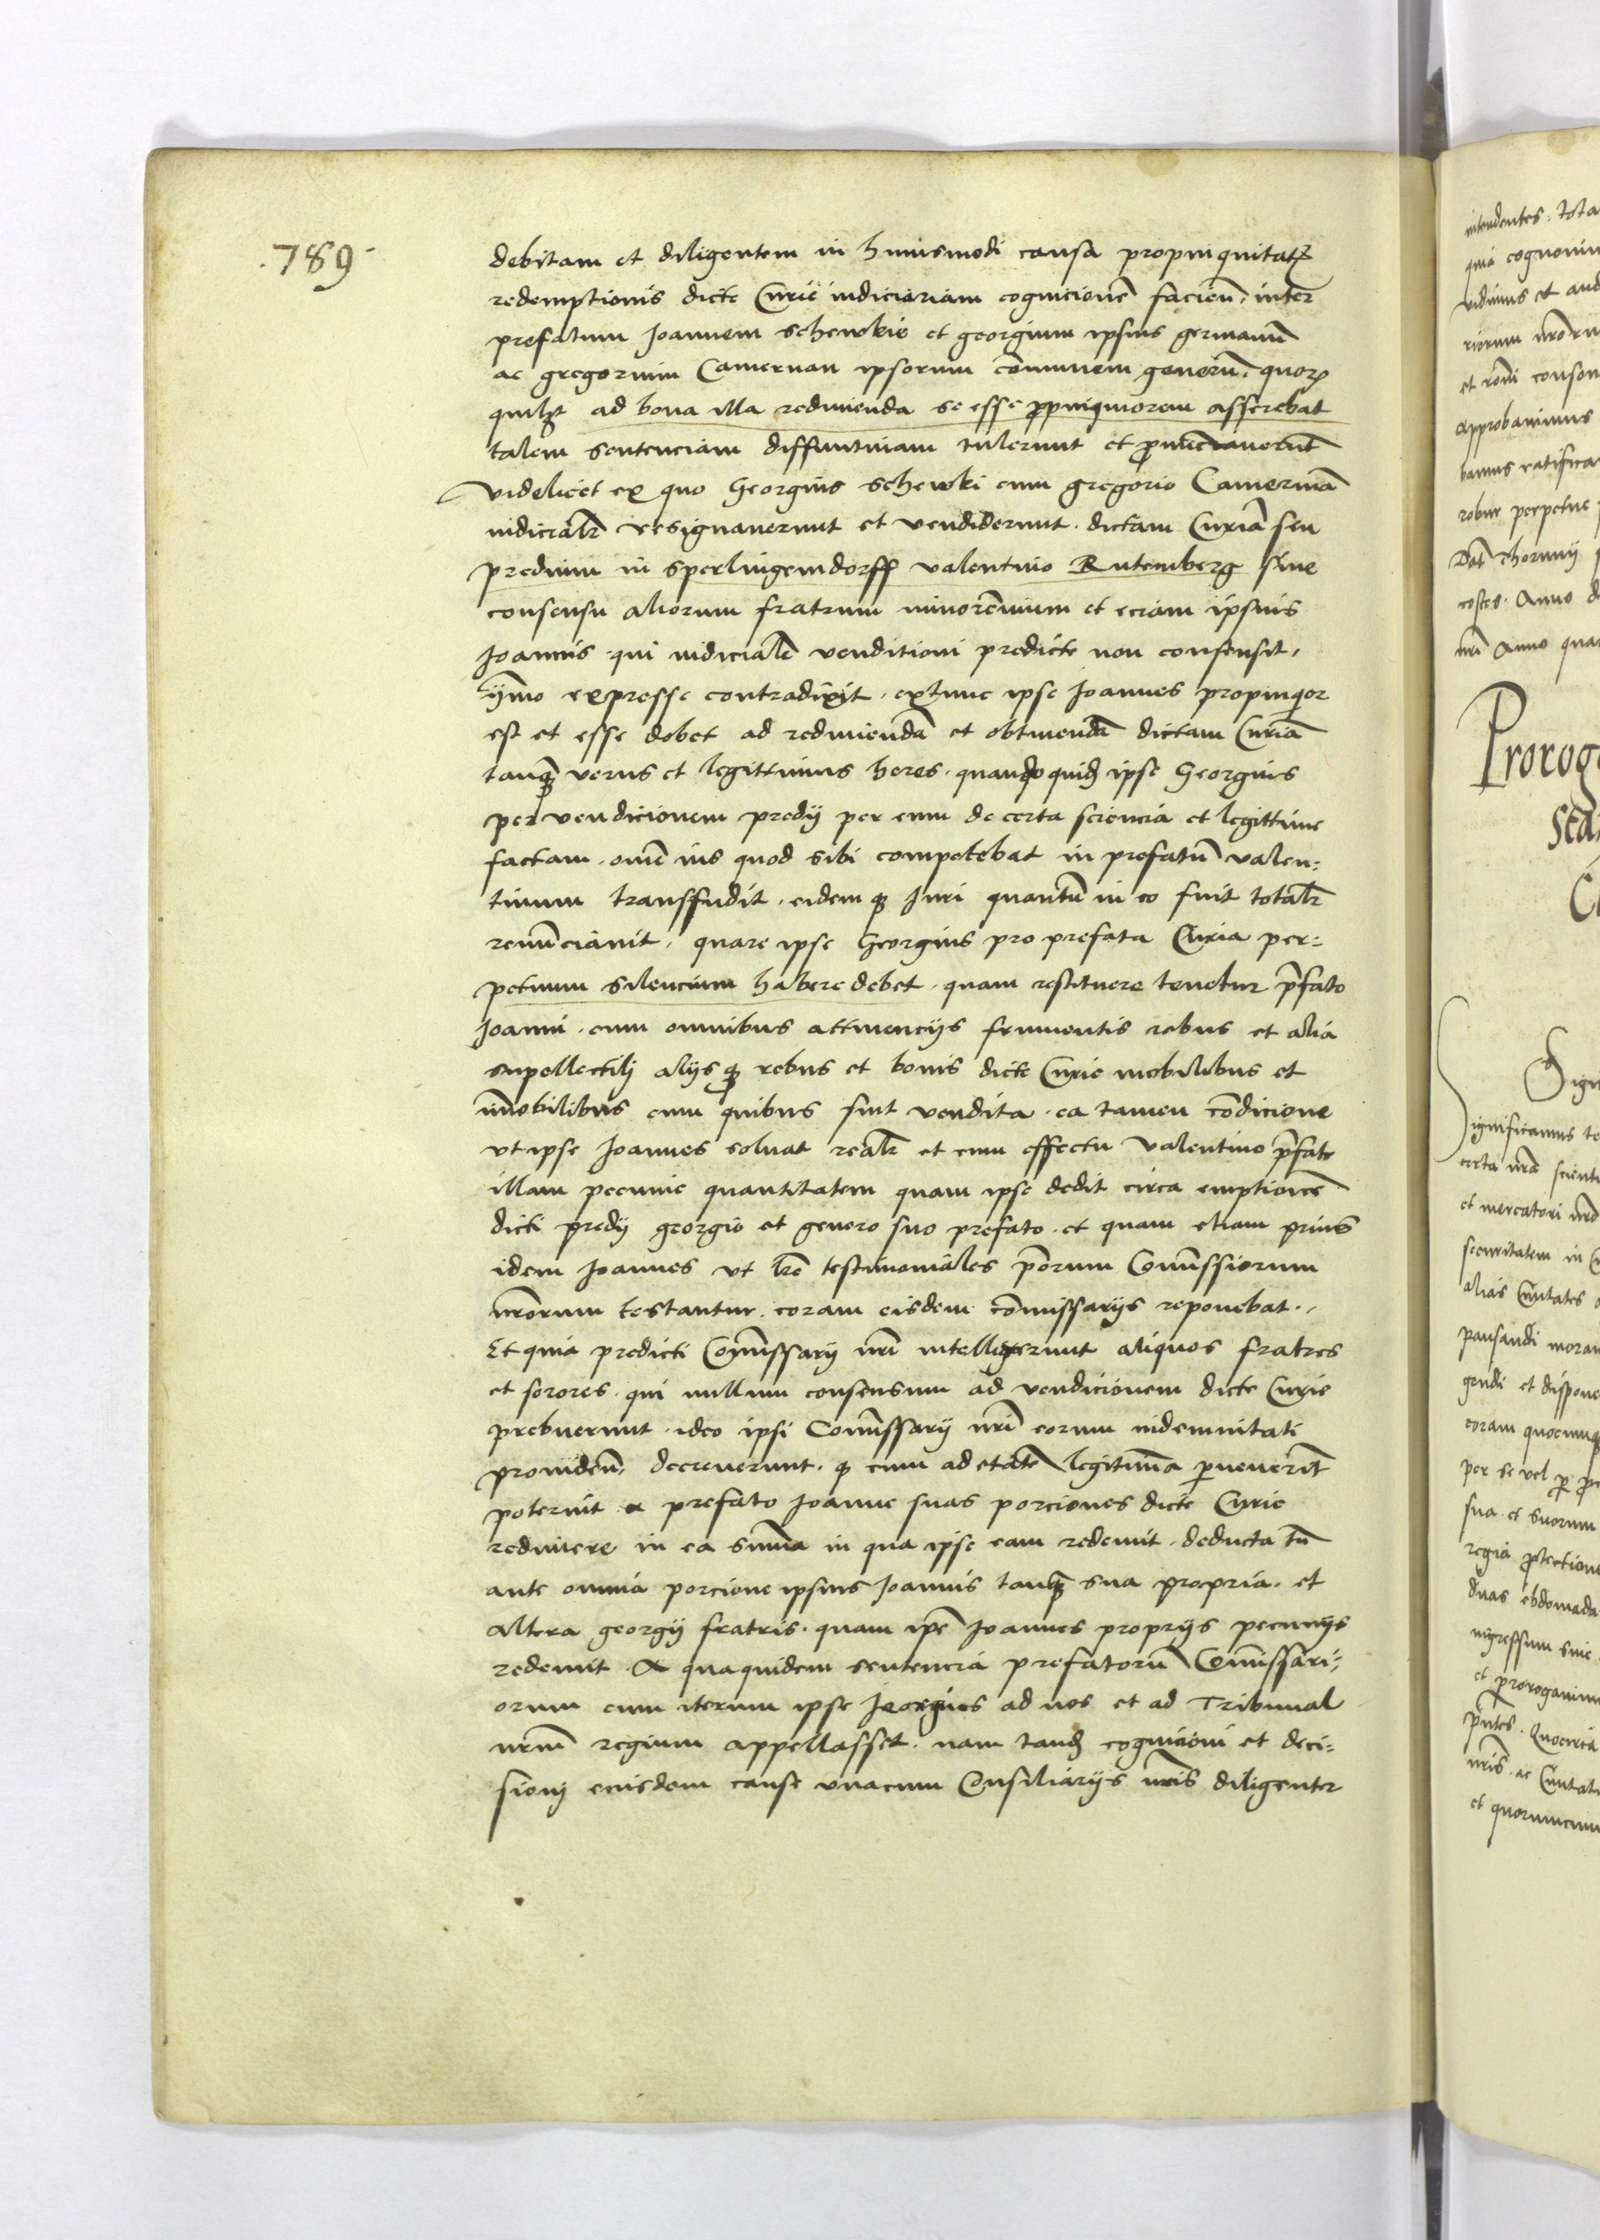 .789.
debitam et diligentem in huiusmodi causa propinquitatꝭ
redemptionis dicte Curie iudiciariam cognicionē facien̄. inter
prefatum Joannem schewkie et georgium ipsius germanū
ac gregorium Camerman ipsorum cōmunem generū. quorꝝ
quilꝫ ad bona illa redimenda se esse ꝓpinquiorem asserebat
talem sentenciam diffinitiuam tulerunt et ꝓnuncciauerūt
videlicet ex quo Georgius Schewki cum gregorio Camermā
iudicialr̄ resignauerunt et vendiderunt. dictam Curiā seu
predium in sperlingemdorff valentino Rutemberg sine
consensu aliorum fratrum minorēnium et eciam ipsius
Joannis. qui iudicialē venditioni predicte non consensit.
ȳmo expresse contradixit. extunc ipse Joannes propinqᵒr
est et esse debet ad redimiendā et obtinendā dictam Curiā
tanꝗ̄ verus et legittimus heres. quandoquidꝫ ipse Georgius
per vendicionem predij per eum de certa sciencia et legittime
factam. om̄e ius quod sibi competebat in prefatū valen=
tinum transfudit. eidemꝗ Juri quantū in eo fuit totalr̄
renūciauit. quare ipse Georgius pro prefata Curia per=
petuum silencium habere debet. quam restituere tenetur p̄fato
Joanni. cum omnibus attinencijs frumentis rebus et alia
supellectilj alijsꝗ rebus et bonis dicte Curie mobilibus et
īmobilibus cum quibus sint vendita. ea tamen cōdicione
vt ipse Joannes soluat realr̄ et cum effectu Valentino p̄fato
illam pecunie quantitatem quam ipse dedit circa emptionē
dicti predij georgio et genero suo prefato. et quam etiam prius
idem Joannes vt lr̄e testimoniales p̄orum Com̄issiorum
nr̄orum testantur. coram eisdem cōmissarijs reponebat.
Et quia predicti Com̄issarij nr̄i intellexerunt aliquos fratres
et sorores. qui nullum consensum ad vendicionem dicte Curie
prebuerunt. ideo ipsi Com̄issarij nr̄i eorum indemnitati
prouiden̄. decreuerunt. ꝙ cum ad etatē legitimā ꝑuenerīt
poterint a prefato Joanne suas porciones dicte Curie
redimere in ea sum̄a in qua ipse eam redemit. deducta tn̄
ante omnia porcione ipsius Joannis tanꝗ̄ sua propria. et
altera georgij fratris. quam ip̄e Joannes proprijs pecunijs
redemit. A quaquidem sentencia prefatorū Com̄issari=
orum cum iterum ipse Jeorgius ad nos et ad Tribunal
nr̄um regium appellasset. nam tandꝫ cognicioni et deci=
sionj eiusdem cause vnacum Consiliarijs nr̄is diligenter
intendentes. tota
quia cognouim
vidimus et aud
riorum nr̄oru
et rōni conson
approbauimus
bamus ratifica
robur perpetue
Dat̄ Thorunij
costes. Anno d
nr̄i Anno qua
Prorog
sta
Sign
ignificamus te
certa nr̄a scienti
et mercatori nr̄o
securitatem in C
alias Ciuitates
pausandi moran
gendi et dispone
coram quocumꝗ
per se vel ꝑ
sua. et suorum
regia ꝓtectione
duas ebdomada
ingressum siue
et prorogauim
p̄ntes. Quocirca
nr̄is. ac Ciuitat
et quorumcum